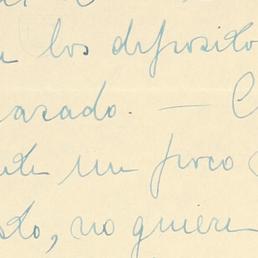 los deposito
asado. — C
un poco
sto, no quiere